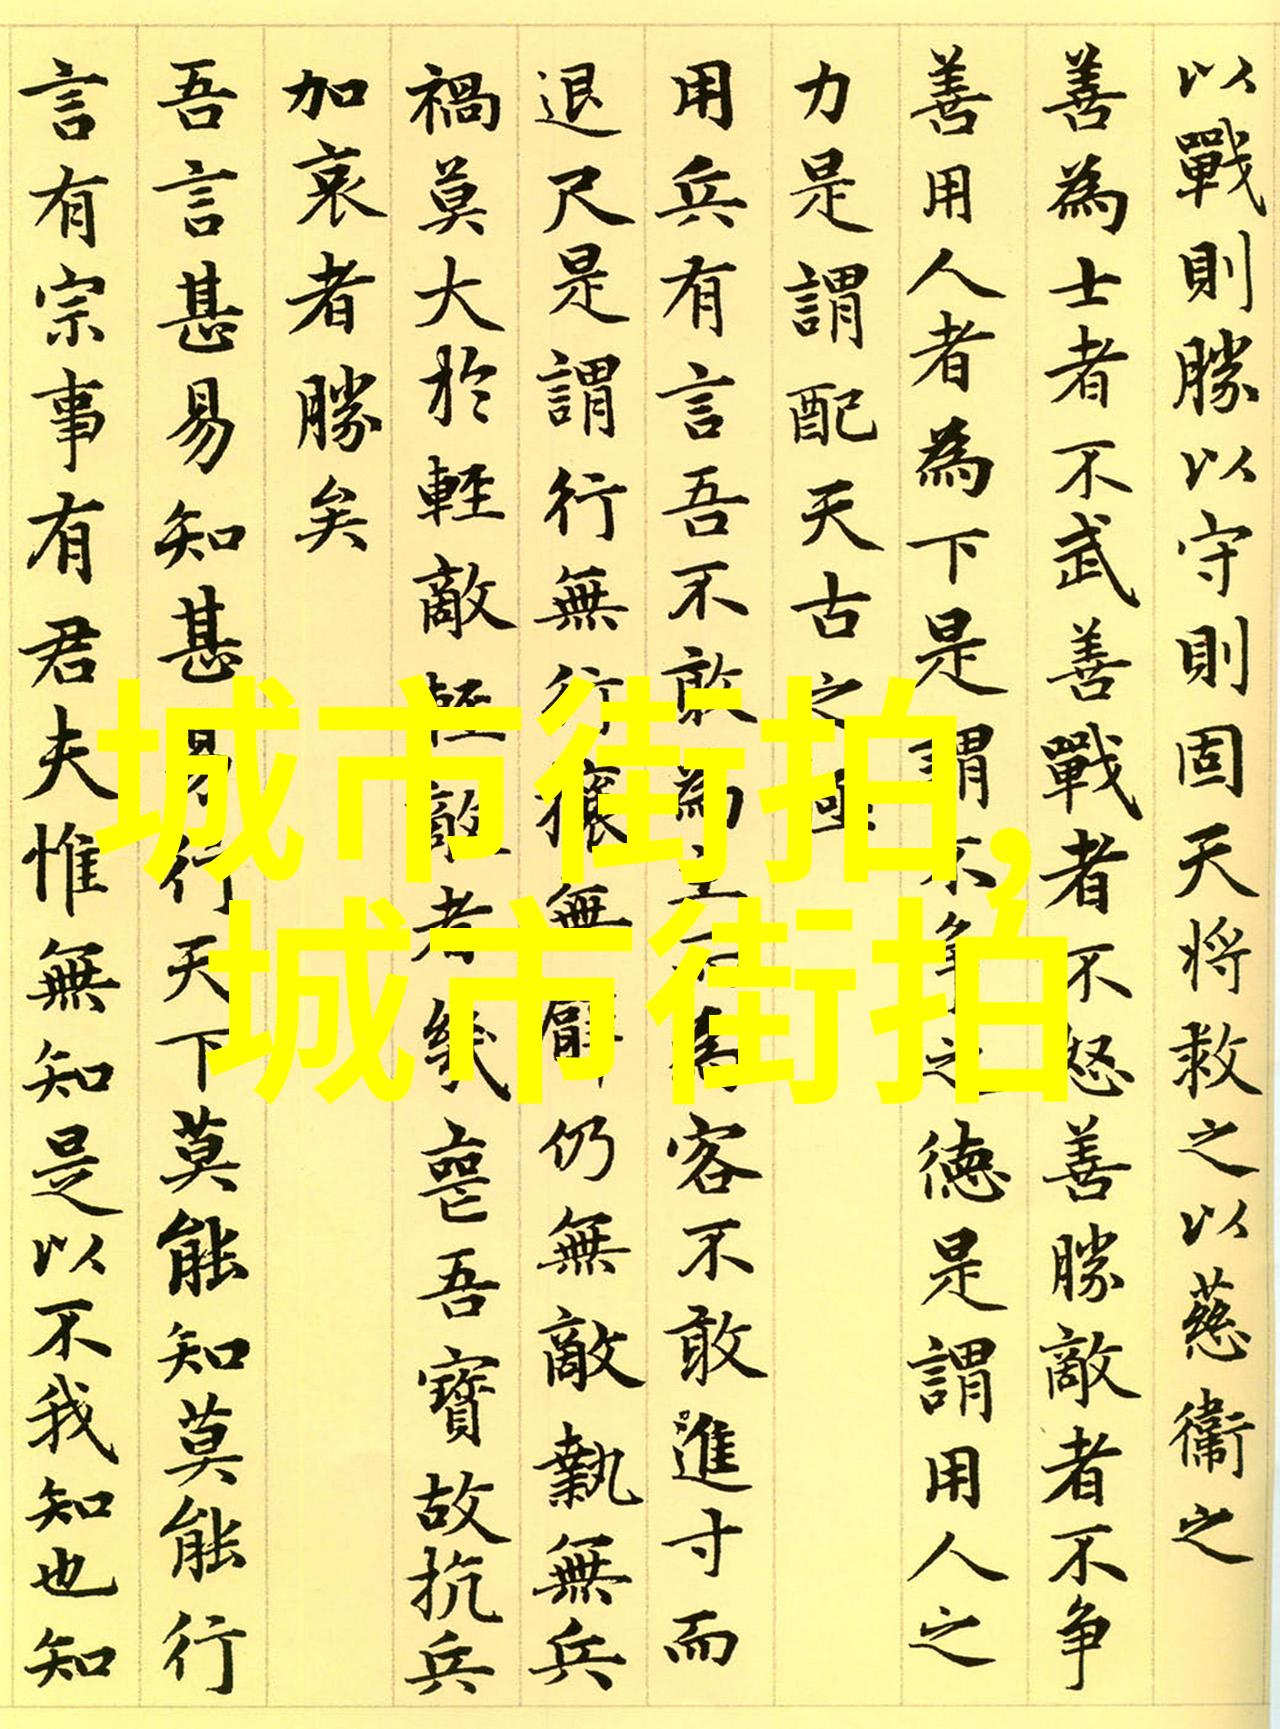 以戰則勝以守則固天将救之以慈衞之
善為士者不武善戰者不怒善勝敵者不争
善用人者為下是謂不争之德是謂用人之
力是謂配天古之極
用兵有言吾不敢為主而為客不敢進寸而
退尺是謂行無行攘無臂仍無敵執無兵
禍莫大於輕敵輕敵者幾喪吾寶故抗兵
加哀者勝矣
吾言甚易知甚易行天下莫能知莫能行
言有宗事有君夫惟無知是以不我知也知
城市街拍,
城市街拍